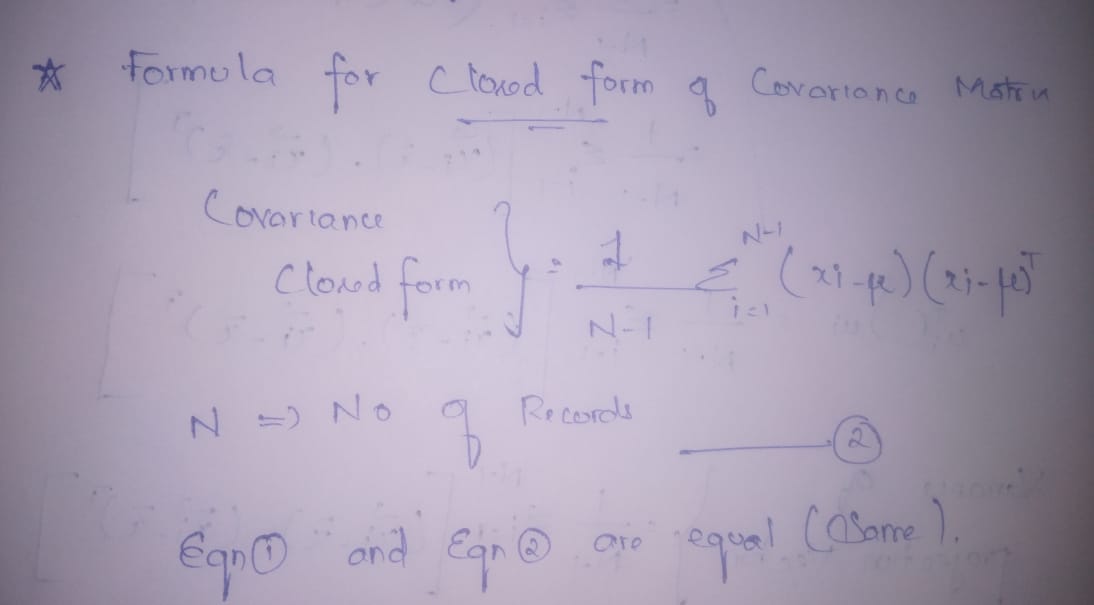 ☆ Formula for Closed form of Covariance Matrix
Covariance
Closed form } = 1/(N-1) Σ_{i=1}^{N-1} (xi-μ)(xi-μ)^T
N => No of Records
——— ②
Eqn ① and Eqn ② are equal (Same).